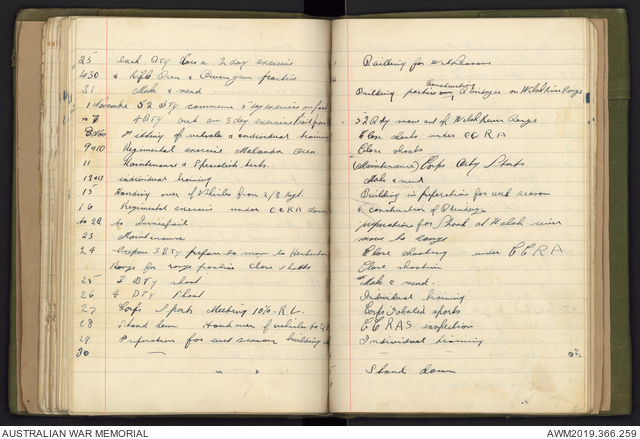 25 each Bty has a 2 day exercise
& 30 & Rifle Oren & Owengun practice
31 Make & mend
1 November 52 Bty commence 5 day exercise
to 7 4 Bty out on 5 day exercise
8 Nov fitting of vehicles & individual training
9 & 10 Regimental exercise Malanda area
11 Maintenance & Specialists tests
12 individual training
15 Handing over of Vehicles from 2/2 Regt.
16 Regimental exercise under CCRA down
to 22 to Innisfail
23 Maintenance
24 Prepare 3 Bty prepare to move to Herberton
Range for range parties close shoots
25 3 Bty shoot
26 4 Bty Shoot
27 Corps Sports Meeting 106. R.L.
28 Stand down Hand over of vehicles to
29 Preperation for wet season building
30 —
Building for wet season
Building parties Construction on Walsh River Range
52 Bty move out to Walsh River Range
Close shoots under CCRA
Close shoots
(Maintenance) Corps Arty Sports
Make & mend
Building in preperation for wet season
& construction of
preperation for Shoot at Walsh river
move to range
Close shooting under CCRA
Close shooting
Make & mend.
Individual training
Corps sports
CCRAS inspection
Individual training
Stand down
AUSTRALIAN WAR MEMORIAL
AWM2019.366.259